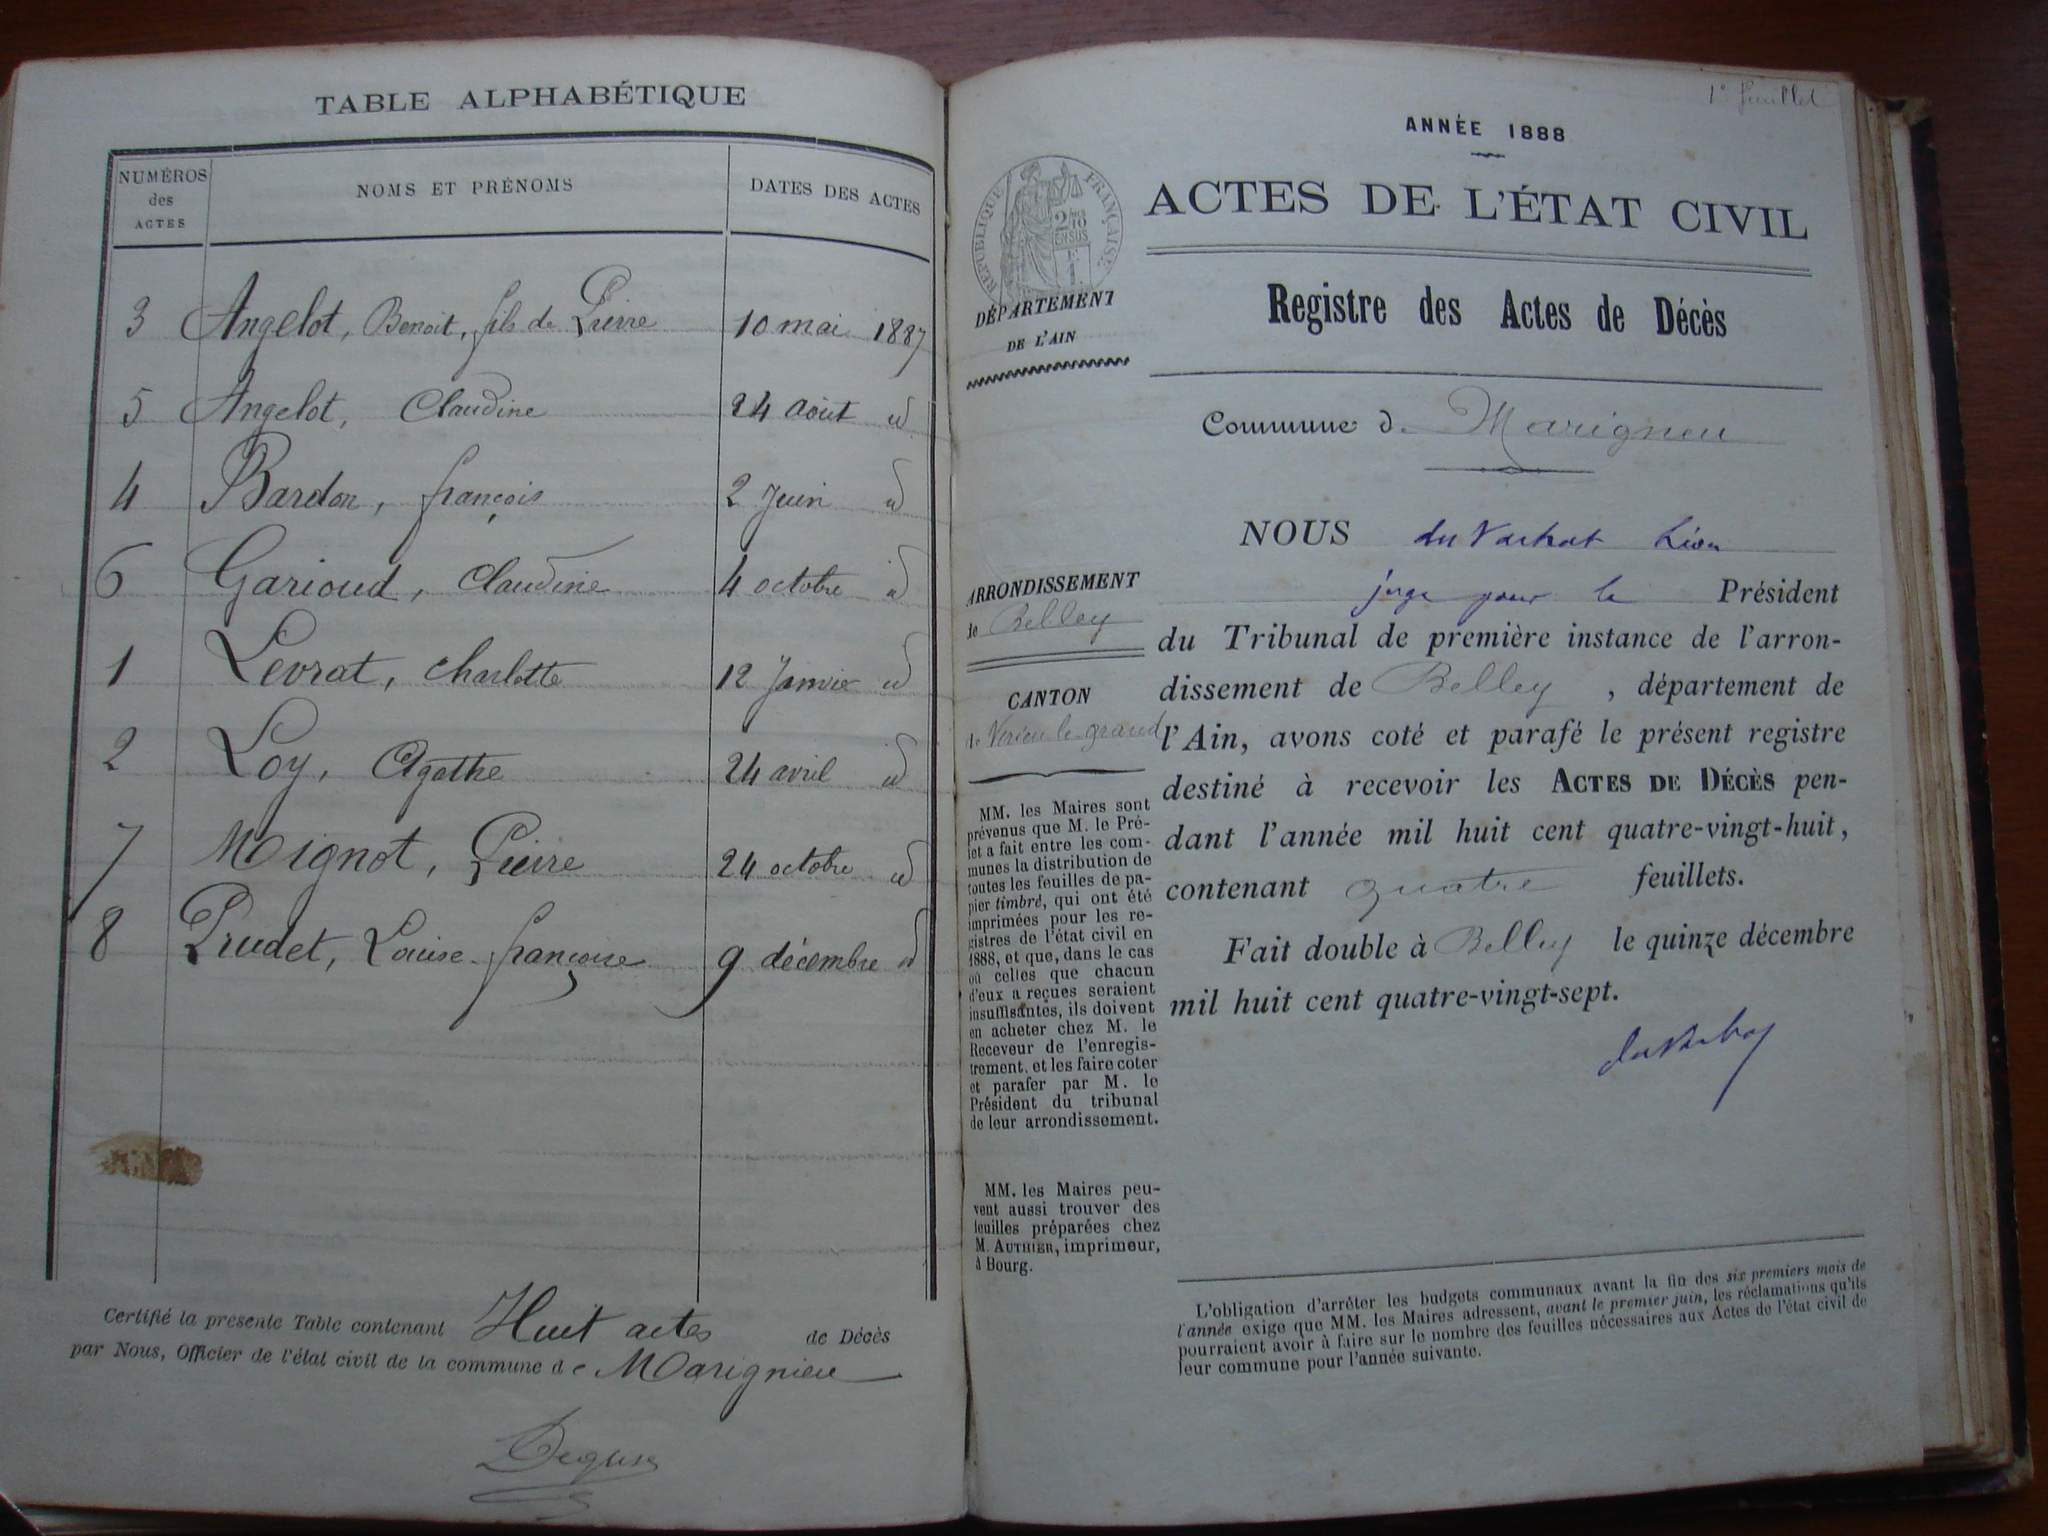 TABLE ALPHABÉTIQUE
NUMÉROS des ACTES
NOMS ET PRÉNOMS
DATES DES ACTES
3 Angelot, Benoit, fils de Pierre 10 mai 1887
5 Angelot, Claudine 24 août id
4 Bardon, françois 2 Juin id
6 Garioud, Claudine 4 octobre id
1 Levrat, Charlotte 12 Janvier id
2 Loy, Agathe 24 avril id
7 Mignot, Pierre 24 octobre id
8 Prudet, Louise françoise 9 décembre id
Certifié la présente Table contenant Huit actes de Décès
par Nous, Officier de l'état civil de la commune de Marignieu
1er feuillet
ANNÉE 1888
ACTES DE L'ÉTAT CIVIL
RÉPUBLIQUE FRANÇAISE
2/10 EN SUS
DÉPARTEMENT
DE L'AIN
Registre des Actes de Décès
Commune de Marignieu
ARRONDISSEMENT
de Belley
CANTON
de Virieu le grand
MM. les Maires sont
prévenus que M. le Pré-
fet a fait entre les com-
munes la distribution de
toutes les feuilles de pa-
pier timbré, qui ont été
imprimées pour les re-
gistres de l'état civil en
1888, et que, dans le cas
où celles que chacun
d'eux a reçues seraient
insuffisantes, ils doivent
en acheter chez M. le
Receveur de l'enregis-
trement, et les faire coter
et parafer par M. le
Président du tribunal
de leur arrondissement.
MM. les Maires peu-
vent aussi trouver des
feuilles préparées chez
M. AUTHIER, imprimeur,
à Bourg.
NOUS du Vachat
juge pour le Président
du Tribunal de première instance de l'arron-
dissement de Belley, département de
l'Ain, avons coté et parafé le présent registre
destiné à recevoir les ACTES DE DÉCÈS pen-
dant l'année mil huit cent quatre-vingt-huit,
contenant quatre feuillets.
Fait double à Belley le quinze décembre
mil huit cent quatre-vingt-sept.
L'obligation d'arrêter les budgets communaux avant la fin des six premiers mois de
l'année exige que MM. les Maires adressent, avant le premier juin, les réclamations qu'ils
pourraient avoir à faire sur le nombre des feuilles nécessaires aux Actes de l'état civil de
leur commune pour l'année suivante.